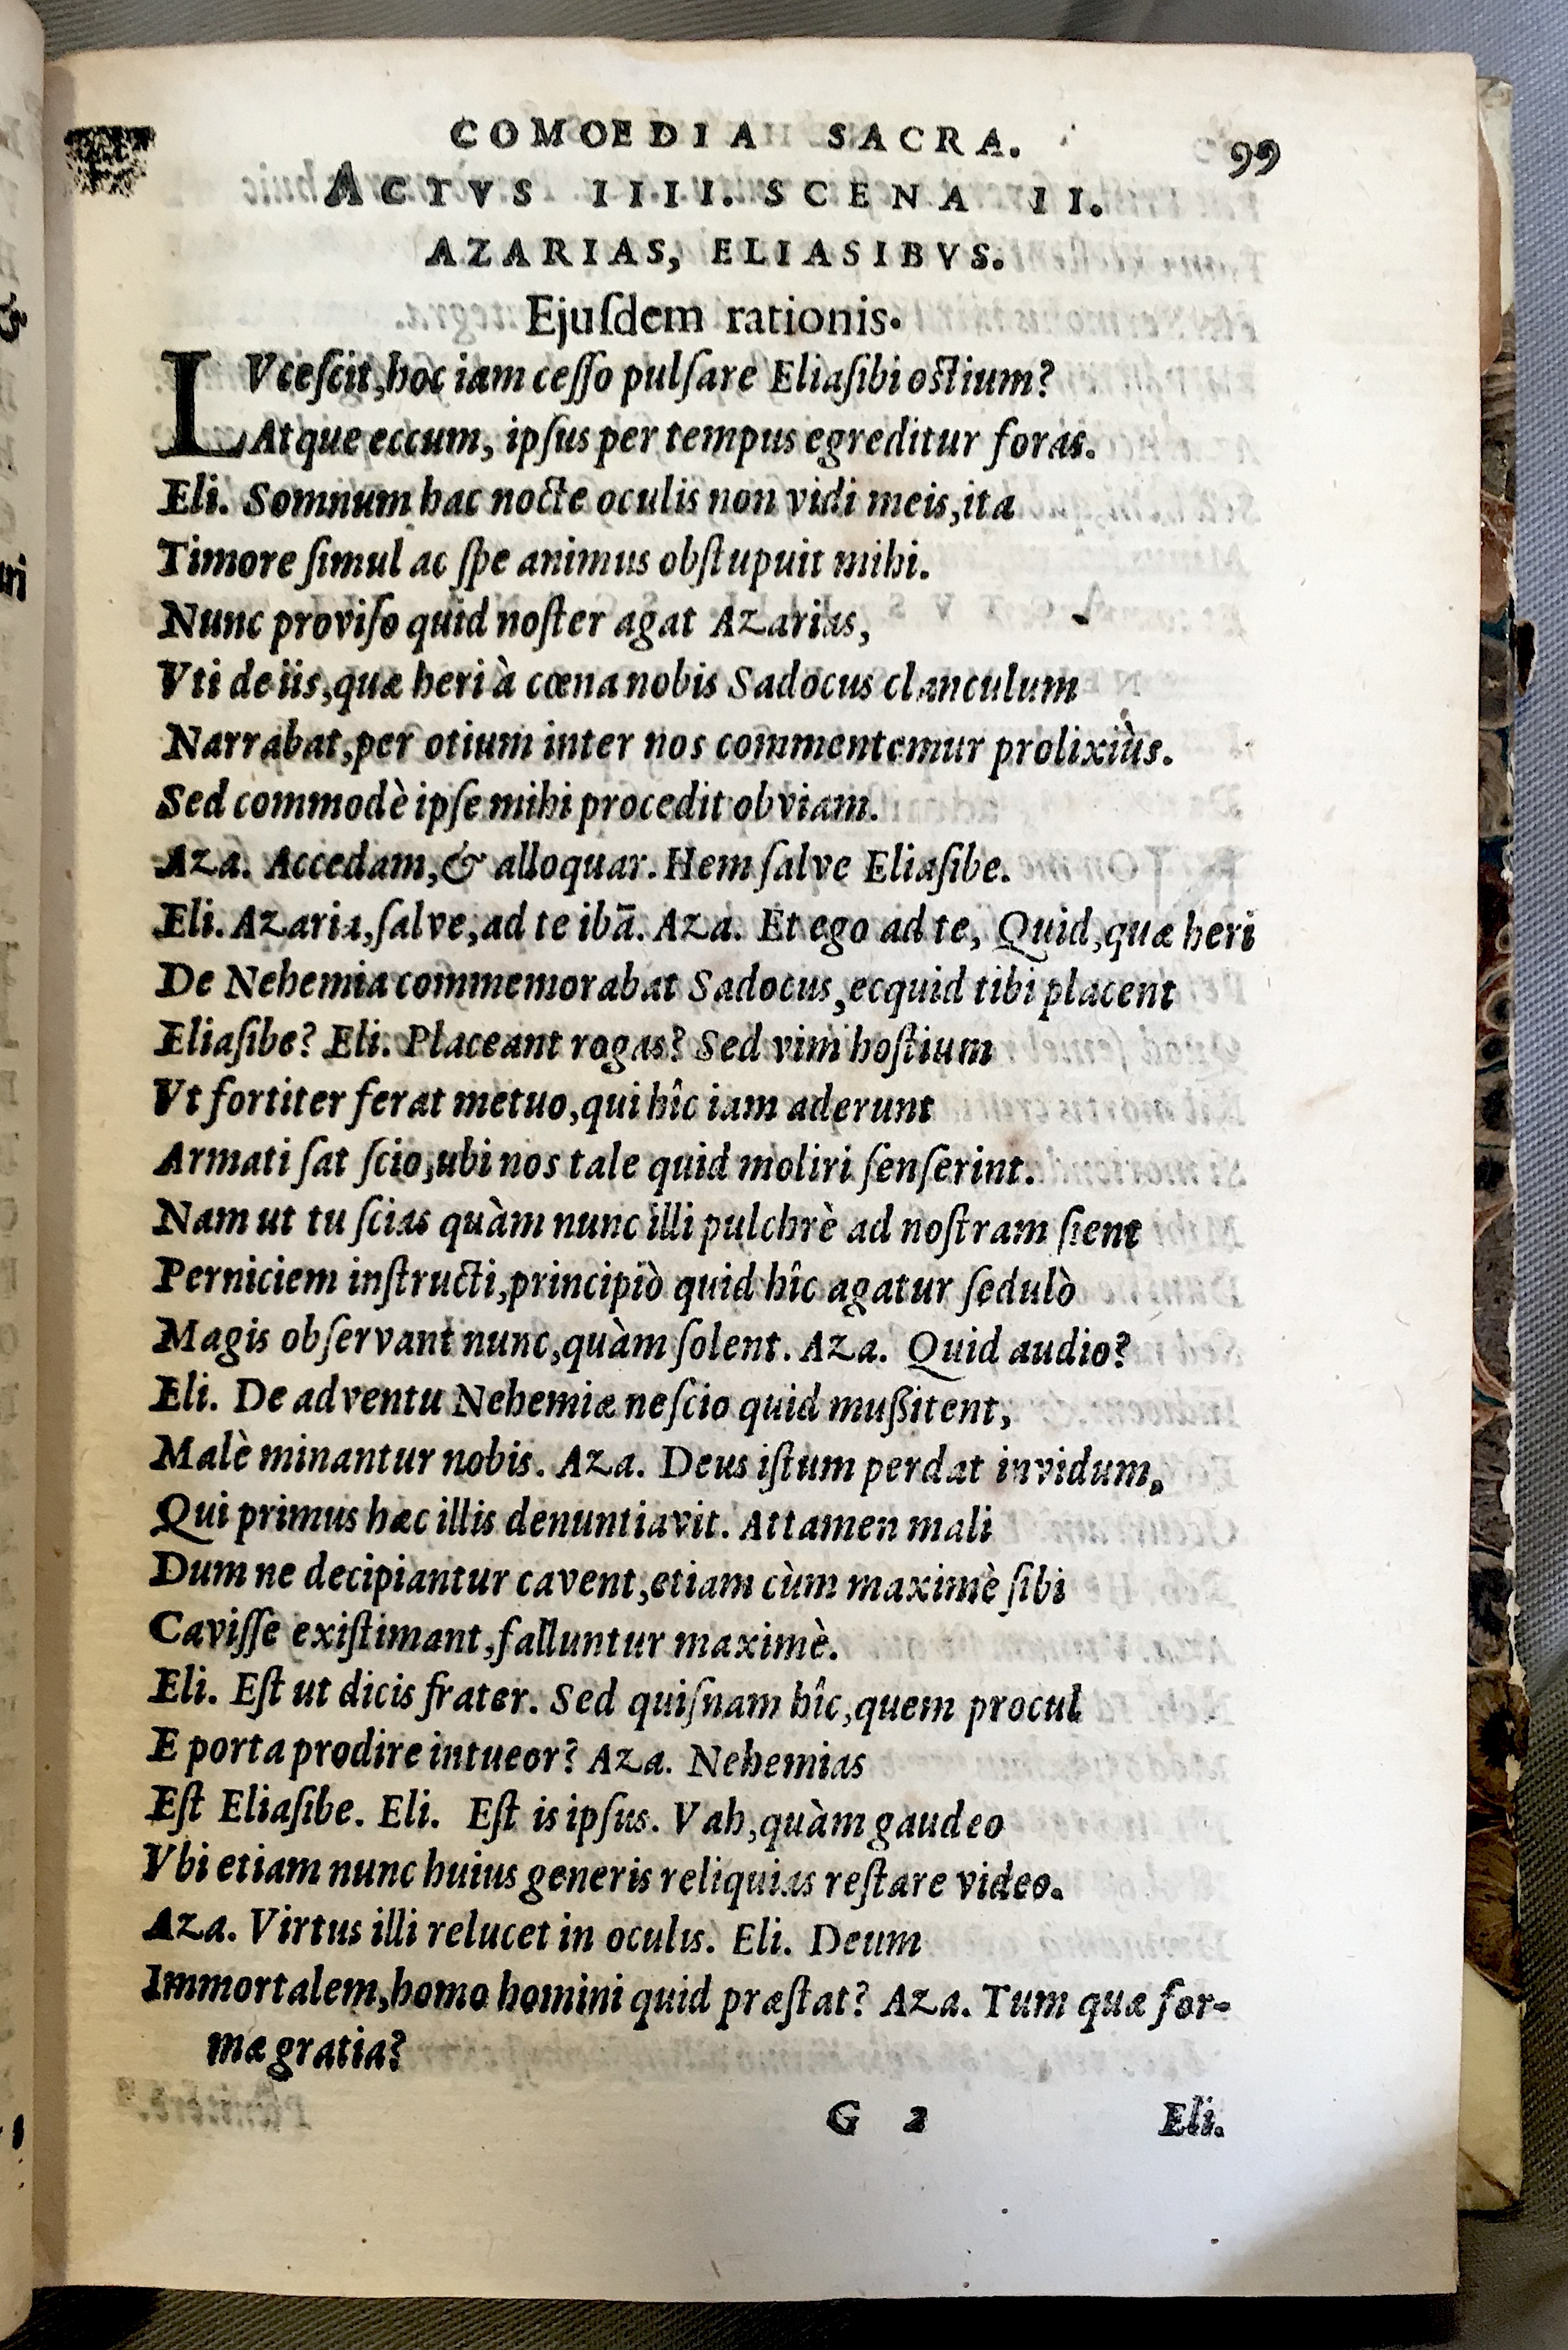 COMOEDIA SACRA. 99
ACTVS IIII. SCENA II.
AZARIAS, ELIASIBVS.
Ejuſdem rationis.
LVceſcit, hoc iam ceſſo pulſare Eliaſibi oſtium?
Atque eccum, ipſus per tempus egreditur foras.
Eli. Somnum hac nocte oculis non vidi meis, ita
Timore ſimul ac ſpe animus obſtupuit mihi.
Nunc proviſo quid noſter agat Azarias,
Vti de iis, quæ heri à cœna nobis Sadocus clanculum
Narrabat, per otium inter nos commentemur prolixiùs.
Sed commodè ipſe mihi procedit obviam.
Aza. Accedam, & alloquar. Hem ſalve Eliaſibe.
Eli. Azaria, ſalve, ad te ibā. Aza. Et ego ad te, Quid, quæ heri
De Nehemia commemorabat Sadocus, ecquid tibi placent
Eliaſibe? Eli. Placeant rogas? Sed vim hoſtium
Vt fortiter ferat metuo, qui hîc iam aderunt
Armati ſat ſcio, ubi nos tale quid moliri ſenſerint.
Nam ut tu ſcias quàm nunc illi pulchrè ad noſtram ſient
Perniciem inſtructi, principiò quid hîc agatur ſedulò
Magis obſervant nunc, quàm ſolent. Aza. Quid audio?
Eli. De adventu Nehemiæ neſcio quid mußitent,
Malè minantur nobis. Aza. Deus iſtum perdat invidum,
Qui primus hæc illis denuntiavit. Attamen mali
Dum ne decipiantur cavent, etiam cùm maximè ſibi
Caviſſe exiſtimant, falluntur maximè.
Eli. Eſt ut dicis frater. Sed quiſnam hîc, quem procul
E porta prodire intueor? Aza. Nehemias
Eſt Eliaſibe. Eli. Eſt is ipſus. Vah, quàm gaudeo
Vbi etiam nunc huius generis reliquias reſtare video.
Aza. Virtus illi relucet in oculis. Eli. Deum
Immortalem, homo homini quid præſtat? Aza. Tum quæ for-
mæ gratia?
G 2 Eli.